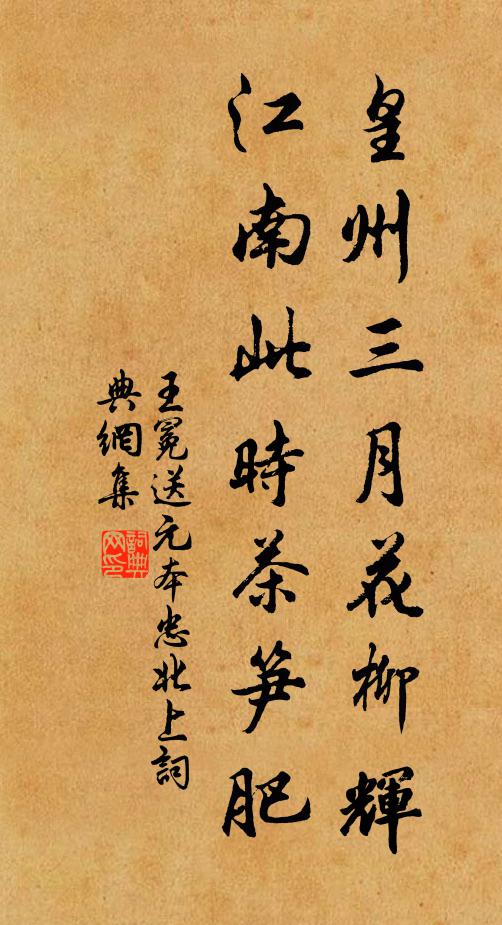 皇州三月花柳輝
江南此時茶笋肥
王冕送元本忠北上詞
典網集
詞典
网印